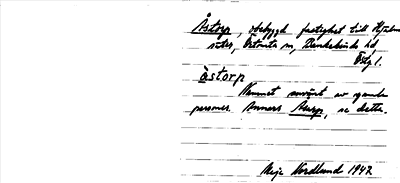 Åstorp, obebyggd fastighet till Hjälm
säter, Örtomta sn, Bankekinds hd,
Östg l.
Åstorp
Namnet använt av gamla
personer. Annars Åtorp, se detta.
Maja Nordlund 1947